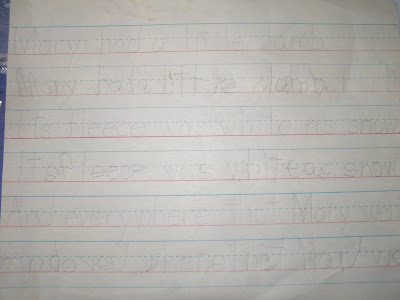 Mary had a little lamb.
Mary hada little lamb.
Its fleece was white as snow
Itsf leece was whiteas snow
And everywhere that Mary wen
andevery where that Mary we